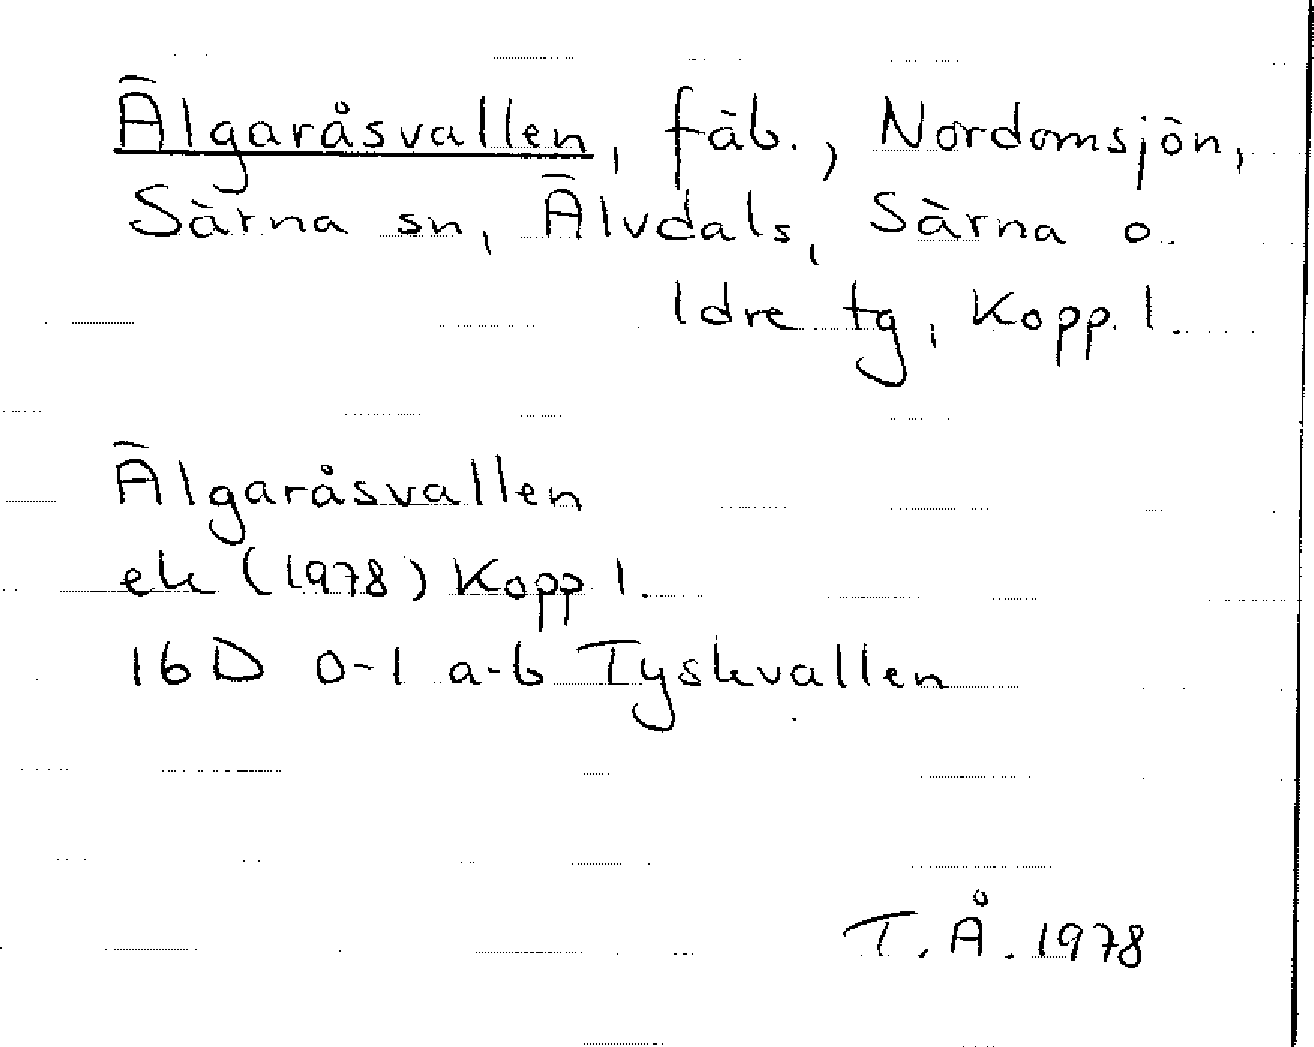 Älgaråsvallen, fäb., Nordomsjön,
Särna sn, Älvdals, Särna o.
Idre tg, Kopp. l.
Älgaråsvallen
ek (1978) Kopp l.
16D 0-1 a-b Tyskvallen
T. Å. 1978